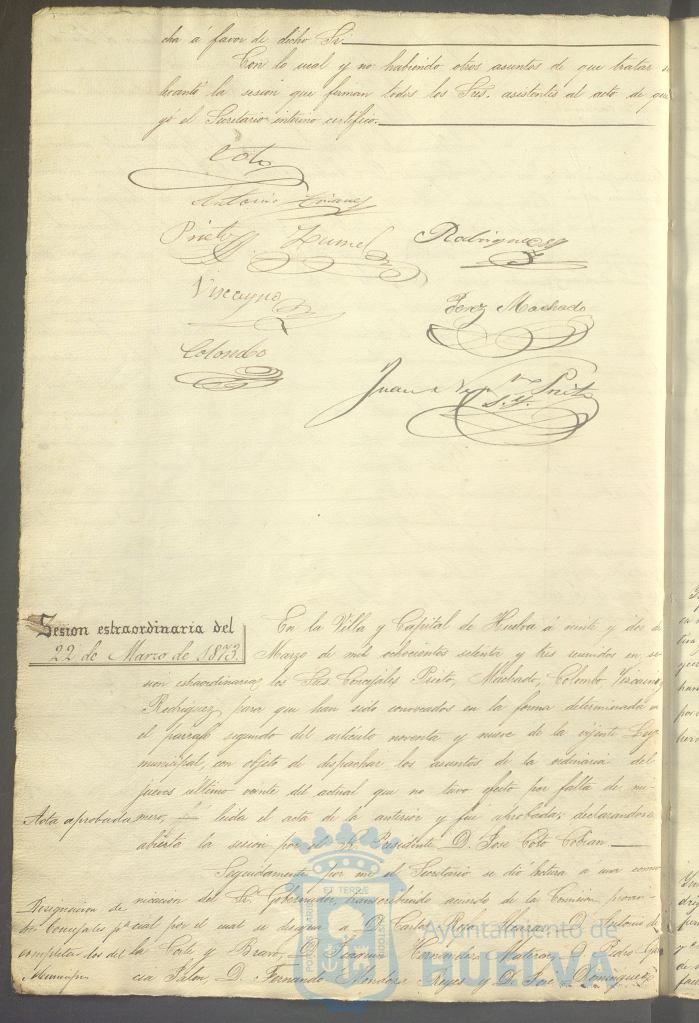 cha á favor de dicho Sr.
Con lo cual y no habiendo otros asuntos de que tratar se
levantó la sesion que firman todos los Sres. asistentes al acto de que
yo el Secretario interino certifico.
Coto
Antonio
Prieto
Rodriguez
Vizcayno
Perez Machado
Colombo
Juan Prieto
Sesion estraordinaria del
22 de Marzo de 1873.
En la Villa y Capital de Huelva á veinte y dos de
Marzo de mil ochocientos setenta y tres reunidos en se-
sion estraordinaria los Sres Concejales Prieto, Machado, Colombo Vizcaino,
Rodriguez, para que han sido convocados en la forma determinada en
el parrafo segundo del artículo noventa y nueve de la vijente Ley
municipal, con objeto de despachar los asuntos de la ordinaria del
jueves último veinte del actual que no tuvo efecto por falta de nú-
Acta aprobada
mero, leida el acta de la anterior y fue aprobada; declarandose
abierta la sesion por el Sr. Presidente D. Jose Coto Cobian
Seguidamente por mi el Secretario se dió lectura á una comu-
Designacion de
nicacion del Sr. Gobernador, transcribiendo acuerdo de la Comision provin-
los Concejales pa
cial por el cual se designa a D. Carlos D. Antonio de
completar los del
la Corte y Bravo, D. Joaquin Hernandez D. Pedro Gar-
Municipio
cia Jalon D. Fernando Mendoza Reyes y D. Jose Dominguez
Ayuntamiento de
HUELVA